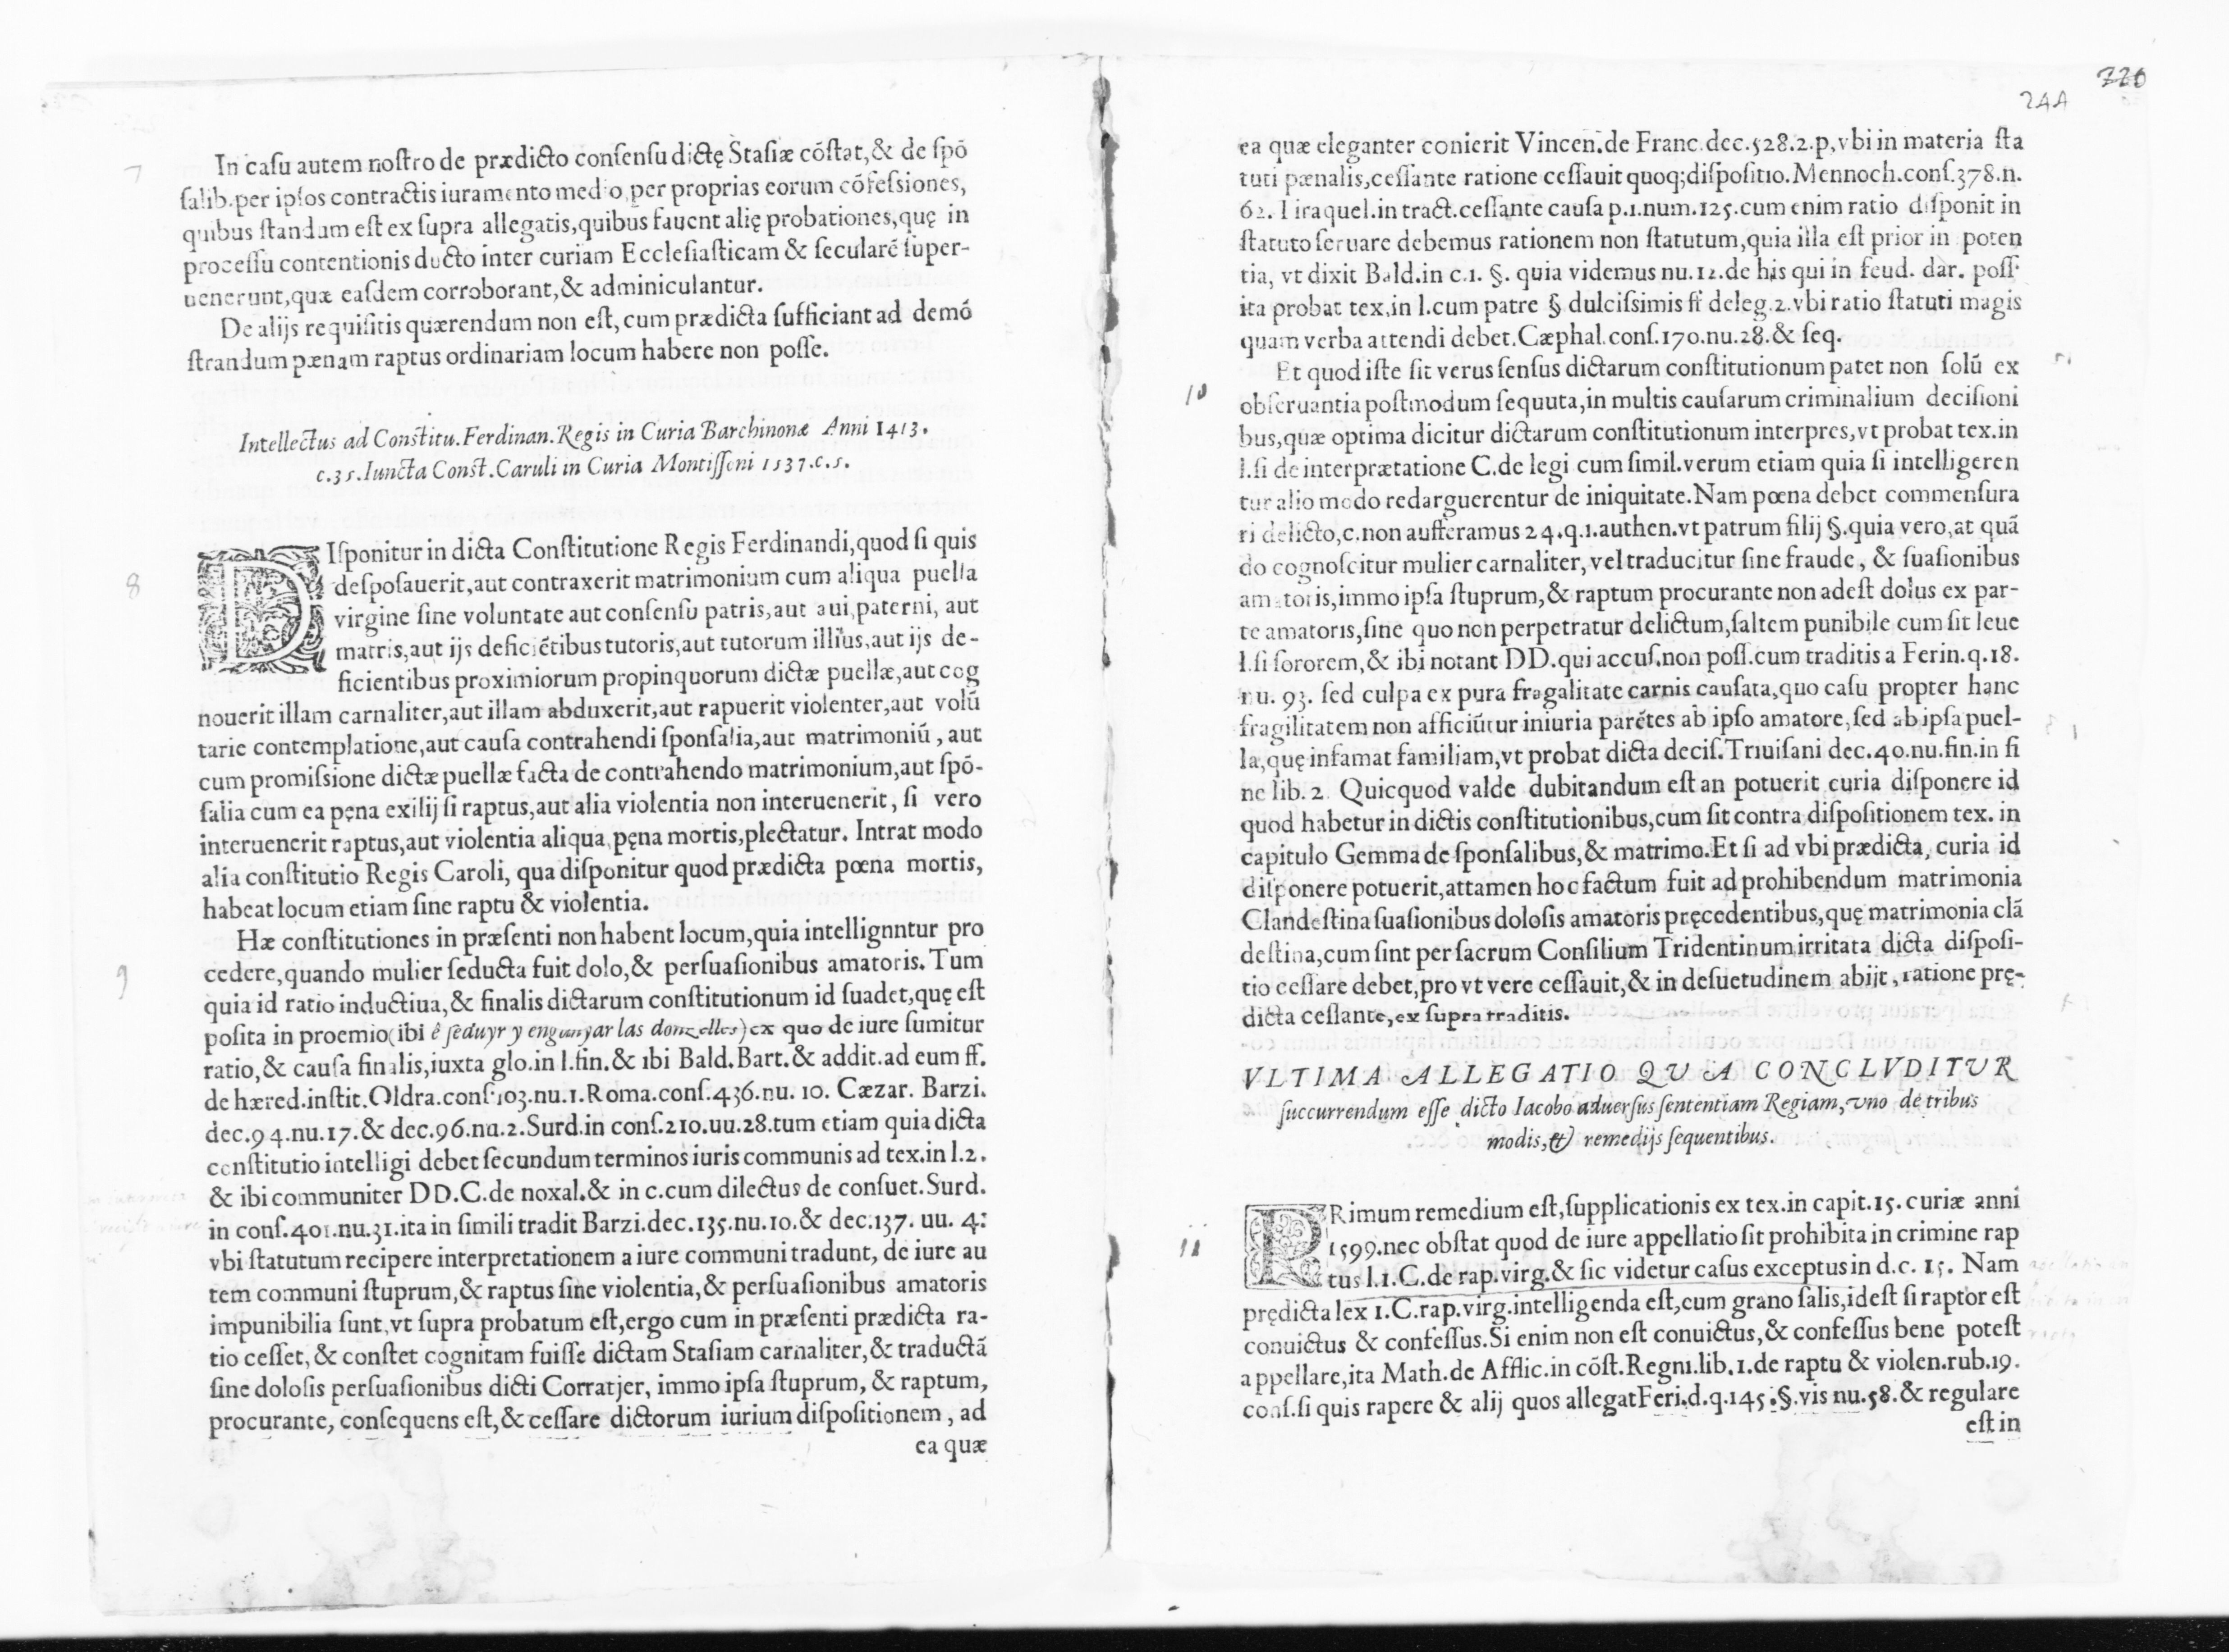 7
In casu autem nostro de prædicto consensu dictę Stasiæ cõstat,& de spõ
salib.per ipsos contractis iuramento medio,per proprias eorum cõfessiones,
quibus standum est ex supra allegatis,quibus fauent alię probationes,quę in
processu contentionis ducto inter curiam Ecclesiasticam & secularẽ super-
uenerunt,quæ easdem corroborant,& adminiculantur.
De alijs requisitis quærendum non est, cum prædicta sufficiant ad demõ
strandum pænam raptus ordinariam locum habere non posse.
Intellectus ad Constitu.Ferdinan.Regis in Curia Barchinonæ Anni 1413.
c.35.Iuncta Const.Caruli in Curia Montissoni 1537.c.5.
8
DIsponitur in dicta Constitutione Regis Ferdinandi,quod si quis
desposauerit,aut contraxerit matrimonium cum aliqua puella
virgine sine voluntate aut consensu patris,aut aui,paterni, aut
matris,aut ijs deficiẽtibus tutoris,aut tutorum illius,aut ijs de-
ficientibus proximiorum propinquorum dictæ puellæ,aut cog
nouerit illam carnaliter,aut illam abduxerit,aut rapuerit violenter,aut volũ
tarie contemplatione,aut causa contrahendi sponsalia,aut matrimoniũ, aut
cum promissione dictæ puellæ facta de contrahendo matrimonium,aut spõ-
salia cum ea pęna exilij si raptus,aut alia violentia non interuenerit, si vero
interuenerit raptus,aut violentia aliqua,pęna mortis,plectatur. Intrat modo
alia constitutio Regis Caroli, qua disponitur quod prædicta pœna mortis,
habeat locum etiam sine raptu & violentia.
9
Hæ constitutiones in præsenti non habent locum,quia intellignntur pro
cedere,quando mulier seducta fuit dolo,& persuasionibus amatoris. Tum
quia id ratio inductiua,& finalis dictarum constitutionum id suadet,quę est
posita in proemio(ibi ê seduyr y enganyar las donzelles) ex quo de iure sumitur
ratio,& causa finalis,iuxta glo.in l.fin.& ibi Bald.Bart.& addit.ad eum ff.
de hæred.instit.Oldra.cons.103.nu.1.Roma.cons.436.nu. 10. Cæzar. Barzi.
dec.94.nu.17.& dec.96.nu.2.Surd.in cons.210.uu.28.tum etiam quia dicta
constitutio intelligi debet secundum terminos iuris communis ad tex.in l.2.
& ibi communiter DD.C.de noxal.& in c.cum dilectus de consuet.Surd.
in cons.401.nu.31.ita in simili tradit Barzi.dec.135.nu.10.& dec.137. uu. 4:
vbi statutum recipere interpretationem a iure communi tradunt, de iure au
tem communi stuprum,& raptus sine violentia,& persuasionibus amatoris
impunibilia sunt,vt supra probatum est,ergo cum in præsenti prædicta ra-
tio cesset,& constet cognitam fuisse dictam Stasiam carnaliter,& traductã
sine dolosis persuasionibus dicti Corratjer, immo ipsa stuprum, & raptum,
procurante, consequens est,& cessare dictorum iurium dispositionem, ad
ea quæ
244
ea quæ eleganter conierit Vincen.de Franc.dec.528.2.p,vbi in materia sta
tuti pænalis,cessante ratione cessauit quoq;dispositio.Mennoch.cons.378.n.
62. Tiraquel.in tract.cessante causa p.1.num.125.cum enim ratio disponit in
statuto seruare debemus rationem non statutum,quia illa est prior in poten
tia, vt dixit Bald.in c.1. §. quia videmus nu.12.de his qui in feud. dar. poss.
ita probat tex.in l.cum patre § dulcissimis ff deleg.2.vbi ratio statuti magis
quam verba attendi debet.Cæphal.cons.170.nu.28.& seq.
10
Et quod iste sit verus sensus dictarum constitutionum patet non solũ ex
obseruantia postmodum sequuta,in multis causarum criminalium decisioni
bus,quæ optima dicitur dictarum constitutionum interpres,vt probat tex.in
l.si de interprætatione C.de legi cum simil.verum etiam quia si intelligeren
tur alio modo redarguerentur de iniquitate.Nam pœna debet commensura
ri delicto,c.non aufferamus 24.q.1.authen.vt patrum filij §.quia vero,at quã
do cognoscitur mulier carnaliter, vel traducitur sine fraude, & suasionibus
amatoris,immo ipsa stuprum,& raptum procurante non adest dolus ex par-
te amatoris,sine quo non perpetratur delictum,saltem punibile cum sit leue
l.si sororem,& ibi notant DD.qui accus.non poss.cum traditis a Ferin.q.18.
nu. 93. sed culpa ex pura fragalitate carnis causata,quo casu propter hanc
fragilitatem non afficiũtur iniuria parẽtes ab ipso amatore,sed ab ipsa puel-
la,quę infamat familiam,vt probat dicta decis.Triuisani dec.40.nu.fin.in fi
ne lib. 2. Quicquod valde dubitandum est an potuerit curia disponere id
quod habetur in dictis constitutionibus,cum sit contra dispositionem tex. in
capitulo Gemma de sponsalibus,& matrimo.Et si ad vbi prædicta, curia id
disponere potuerit,attamen hoc factum fuit ad prohibendum matrimonia
Clandestina suasionibus dolosis amatoris pręcedentibus,quę matrimonia clã
destina,cum sint per sacrum Consilium Tridentinum irritata dicta disposi-
tio cessare debet,pro vt vere cessauit,& in desuetudinem abijt, ratione prę-
dicta cessante,ex supra traditis.
VLTIMA ALLEGATIO QVA CONCLVDITVR
succurrendum esse dicto Iacobo aduersus sententiam Regiam, vno de tribus
modis,& remedijs sequentibus.
11
PRimum remedium est,supplicationis ex tex.in capit.15. curiæ anni
1599.nec obstat quod de iure appellatio sit prohibita in crimine rap
tus l.1.C.de rap.virg.& sic videtur casus exceptus in d.c. 15. Nam
prędicta lex 1.C.rap.virg.intelligenda est,cum grano salis,idest si raptor est
conuictus & confessus.Si enim non est conuictus,& confessus bene potest
appellare,ita Math.de Afflic.in cõst.Regni.lib.1.de raptu & violen.rub.19.
cons.si quis rapere & alij quos allegat Feri.d.q.145.§.vis nu.58.& regulare
est in